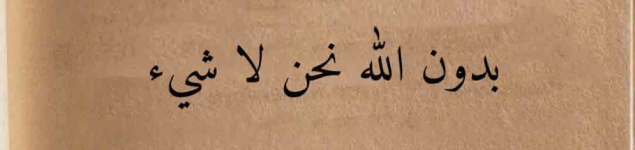 بدون الله نحن لا شيء